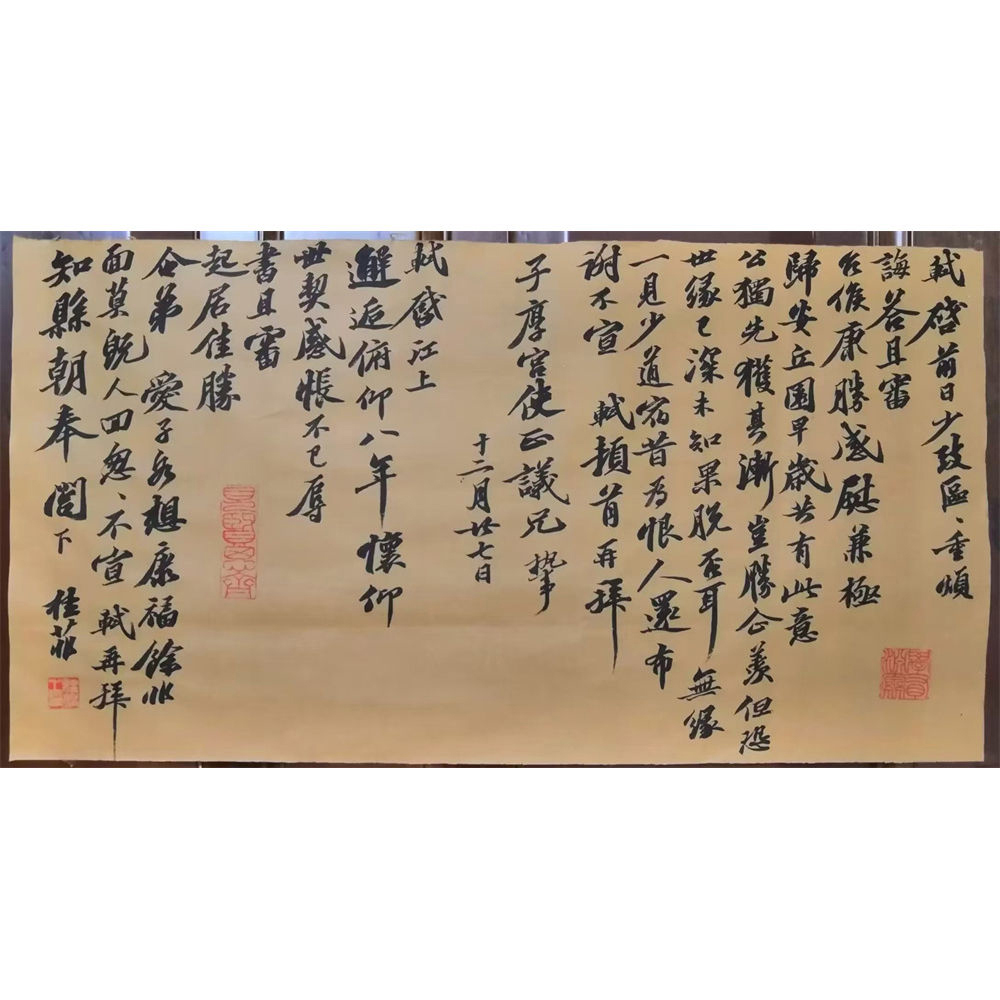 軾啓前日少致區、重煩
誨答且審
台候康勝感慰兼極
歸安丘園早歲共有此意
公獨先獲其漸豈勝企羨但恐
世緣已深未知果脫否耳無緣
一見少道宿昔為恨人還布
謝不宣 軾頓首再拜
子厚宮使正議兄執事
十二月廿七日
軾啓江上
邂逅俯仰八年懷仰
世契感悵不已辱
書且審
起居佳勝
令弟愛子各想康福餘非
面莫既人回怱、不宣軾再拜
知縣朝奉閣下
桂菲